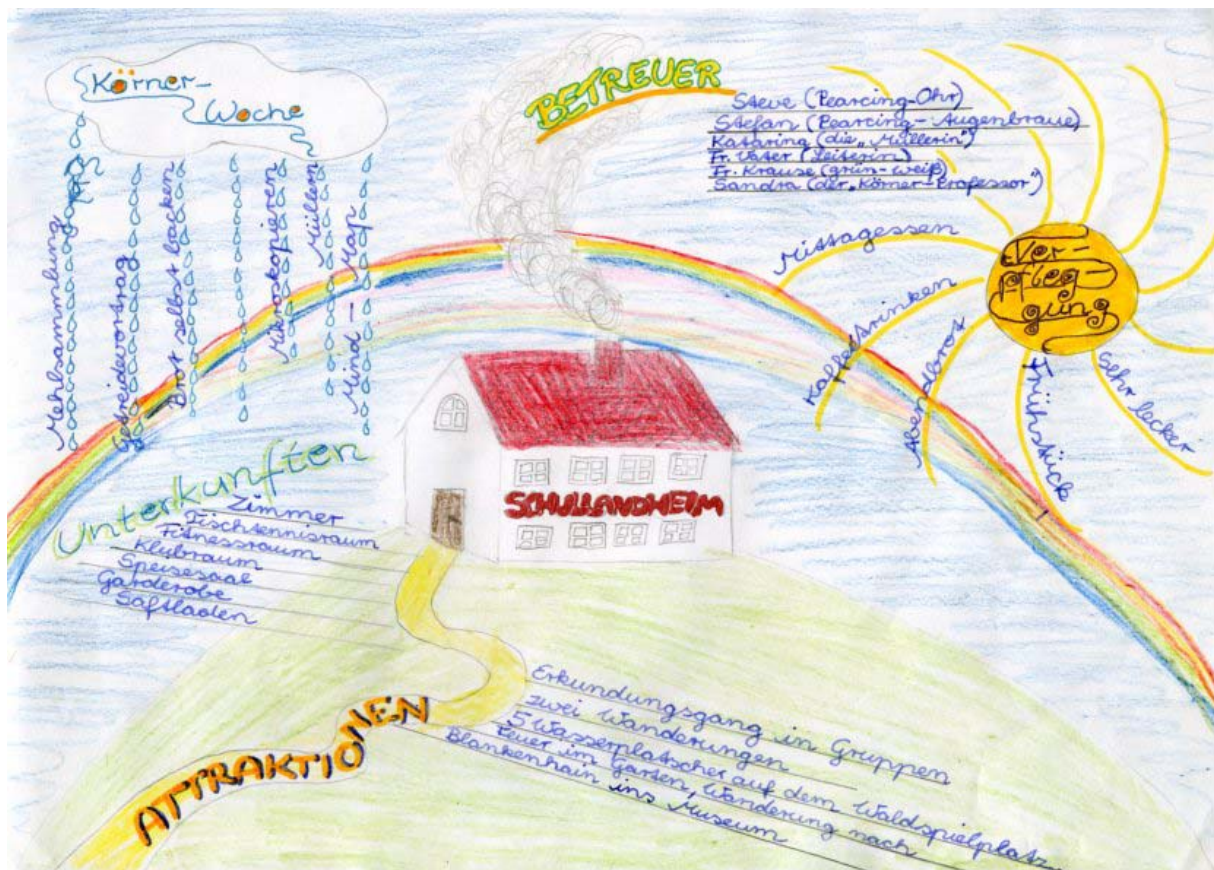 Körner-
Woche
Mehlsammlung
Getreidevortrag
Brot selbst backen
Mikroskopieren
Müllern
Mind - Map
BETREUER
Steve (Pearcing-Ohr)
Stefan (Pearcing-Augenbraue)
Katarina (die „Müllerin")
Fr. Vater (Leiterin)
Fr. Krause (grün-weiß)
Sandra (der „Körner-Professor")
Ver-
pfleg-
gung
Mittagessen
Kaffeetrinken
Abendbrot
Frühstück
Sehr lecker
Unterkunften
Zimmer
Tischtennisraum
Fitnessraum
Klubraum
Speisesaal
Garderobe
Saftladen
SCHULLANDHEIM
ATTRAKTIONEN
Erkundungsgang in Gruppen
zwei Wanderungen
5 Wasserplatscher auf dem Waldspielplatz
Feuer im Garten, Wanderung nach
Blankenhain ins Museum